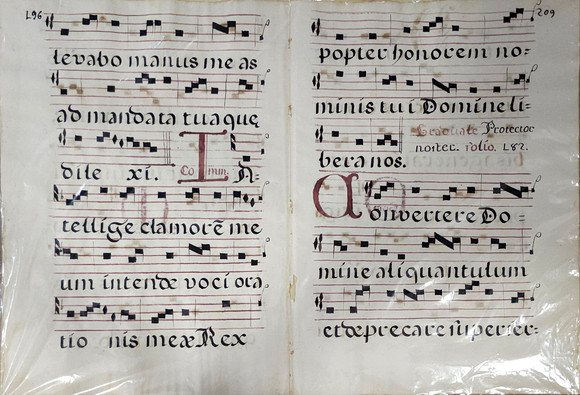 196
levabo manus me as
ad mandata tua que
dile xi. Co mun. IN-
tellige clamorē me
um intende voci ora
tio nis meæ Rex
209
popter honorem no=
minis tui Domine li=
Graduale Protector
noster. folio. 182.
bera nos.
Convertere Do=
mine aliquantulum
et deprecare super ser=